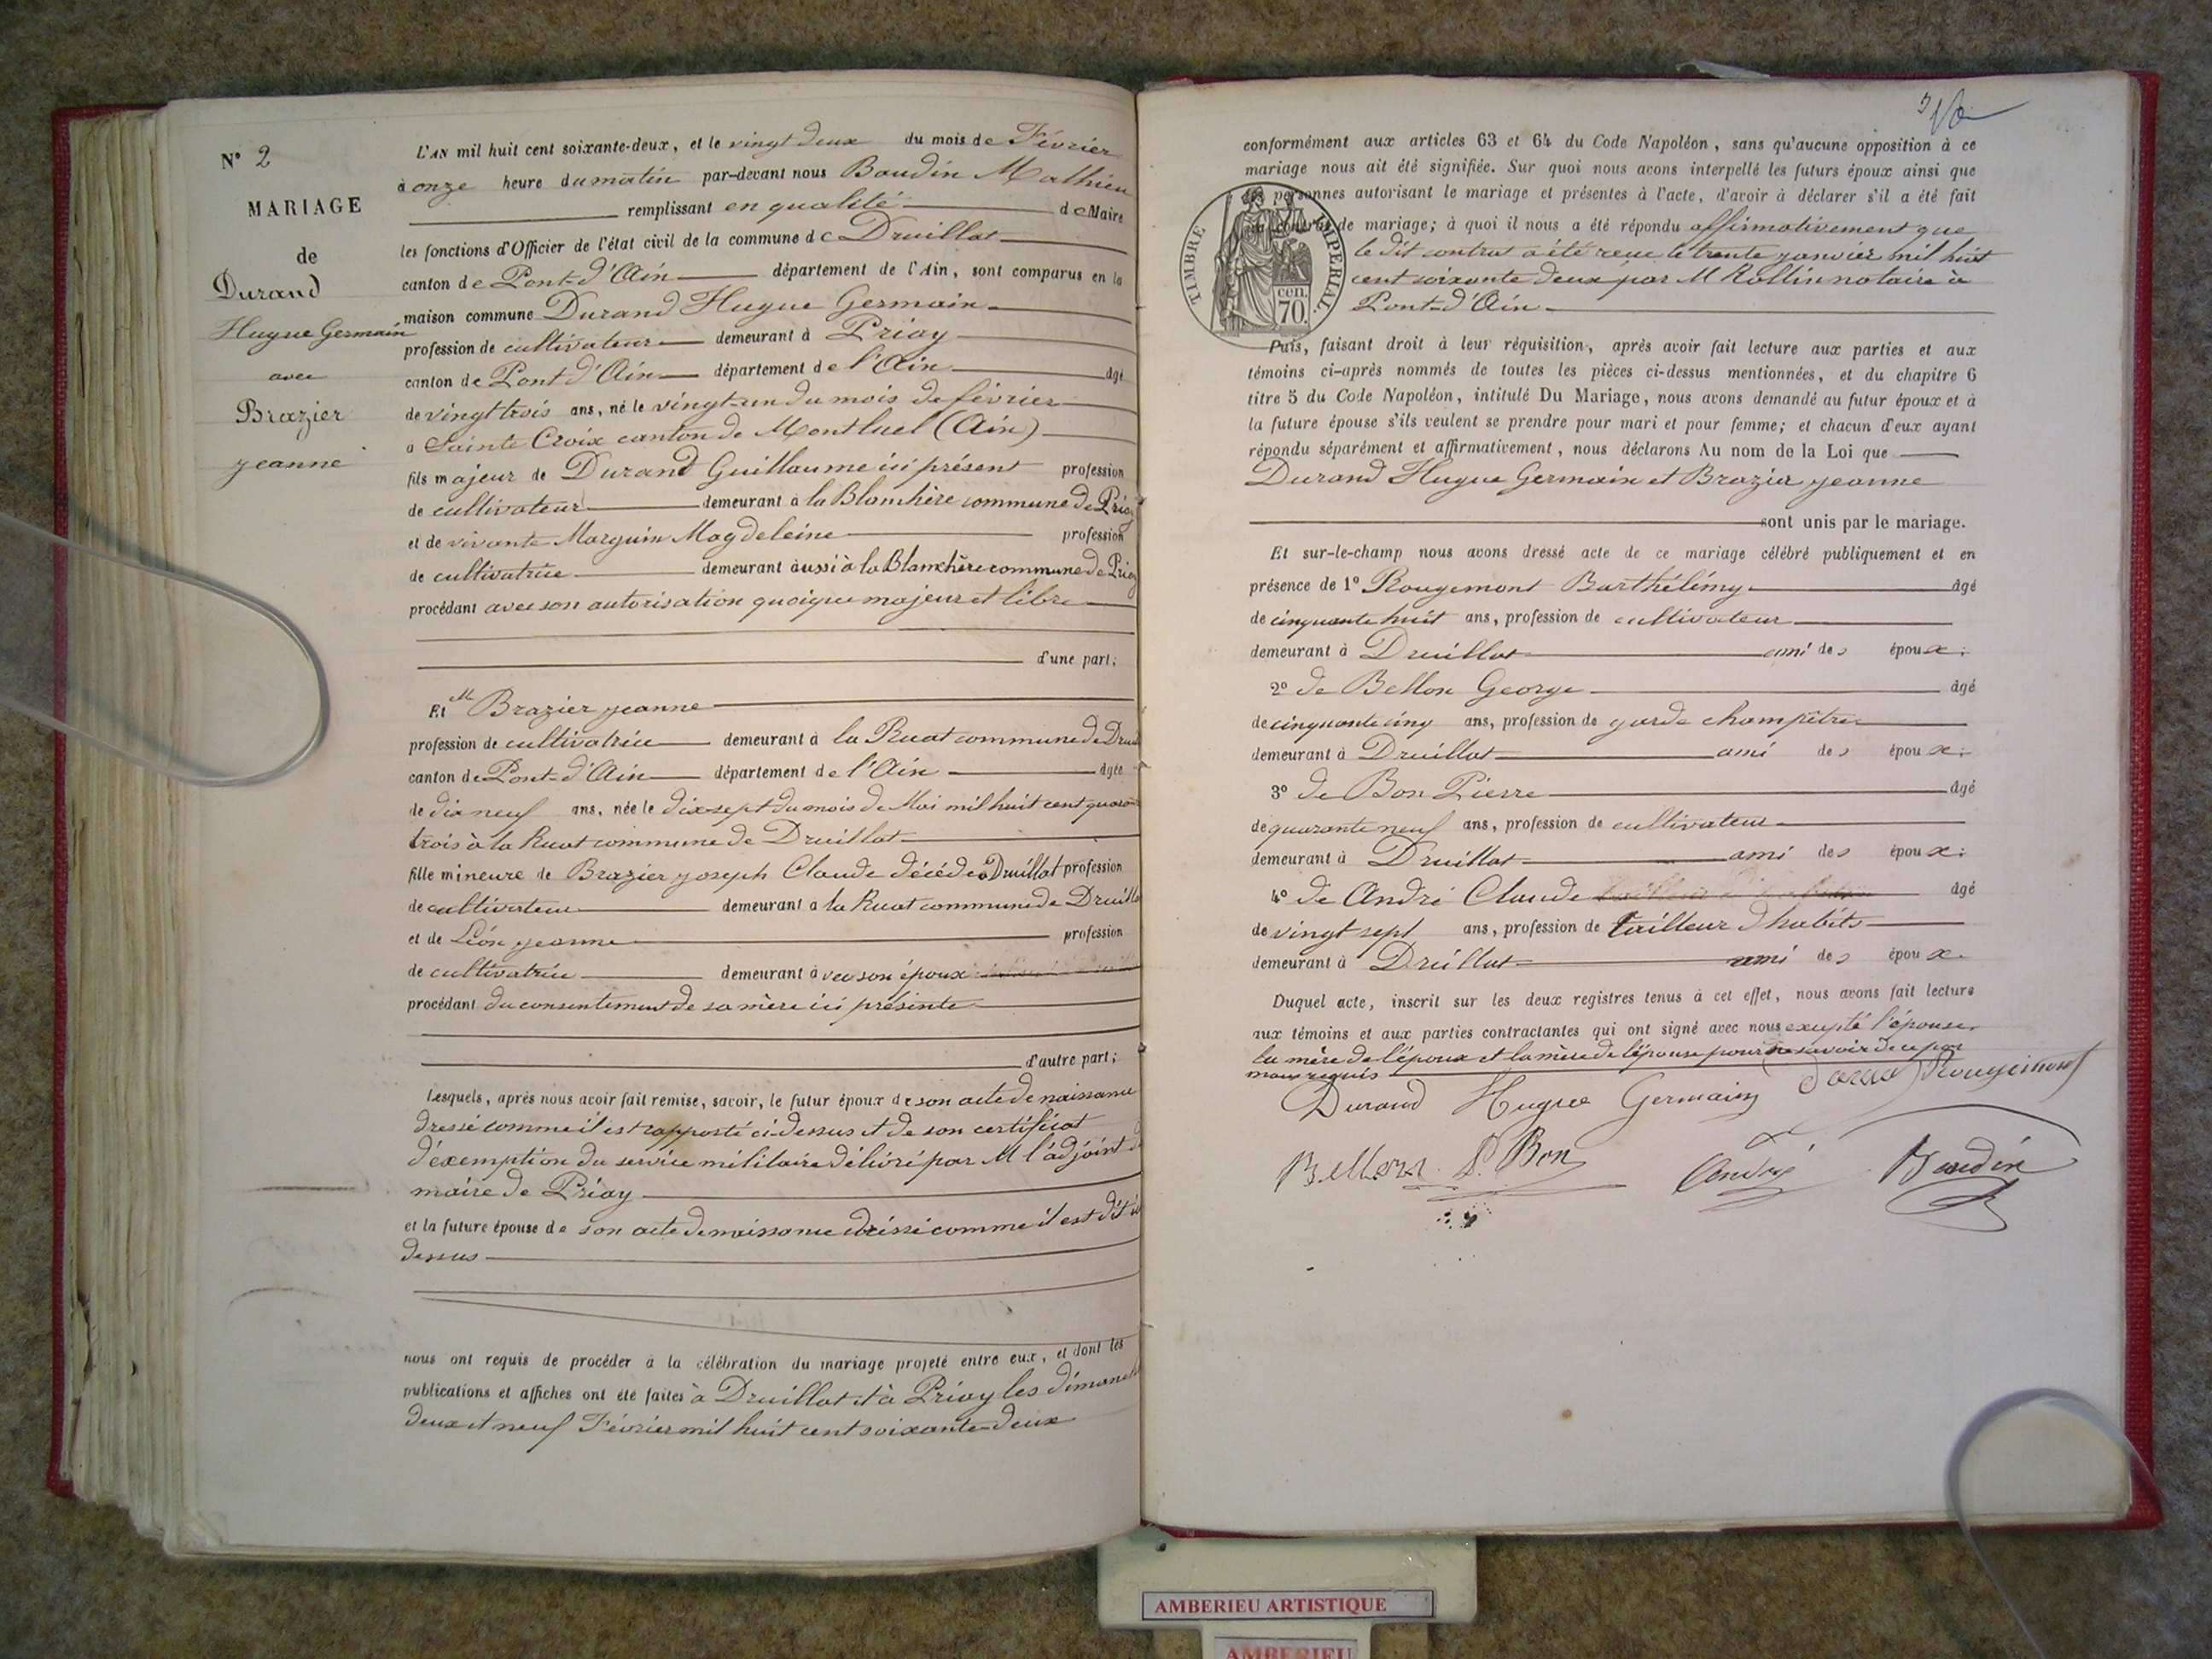 N° 2
MARIAGE
de
Durand
Hugue Germain
avec
Brazier
jeanne
L'AN mil huit cent soixante-deux, et le vingt deux du mois de Février
à onze heure du matin par-devant nous Baudin Mathieu
remplissant en qualité de Maire
les fonctions d'Officier de l'état civil de la commune de Druillat
canton de Pont-d'Ain département de l'Ain, sont comparus en la
maison commune Durand Hugue Germain
profession de cultivateur demeurant à Priay
canton de Pont d'Ain département de l'Ain âgé
de vingt trois ans, né le vingt-un du mois de février
a Sainte Croix canton de Montluel (Ain)
fils majeur de Durand Guillaume ici présent profession
de cultivateur demeurant à la Blanchère commune de Priay
et de vivante Marguin Magdeleine profession
de cultivatrice demeurant aussi à la Blanchère commune de Priay
procédant avec son autorisation quoique majeur et libre
d'une part;
Et Mlle Brazier jeanne
profession de cultivatrice demeurant à la Ruat commune de Druil
canton de Pont-d'Ain département de l'Ain âgée
de dix neuf ans, née le dix sept du mois de Mai mil huit cent quaran
trois à la Ruat commune de Druillat
fille mineure de Brazier joseph Claude décédé à Druillat profession
de cultivateur demeurant a la Ruat commune de Druilla
et de Léon jeanne profession
de cultivatrice demeurant avec son époux
procédant du consentement de sa mère ici présente
d'autre part;
Lesquels, après nous avoir fait remise, savoir, le futur époux de son acte de naissance
dressé comme il est rapporté ci-dessus et de son certificat
d'exemption du service militaire délivré par M l'adjoint
maire de Priay
et la future épouse de son acte de naissance dressé comme il est dit ci
dessus
nous ont requis de procéder à la célébration du mariage projeté entre eux, et dont les
publications et affiches ont été faites à Druillat et à Priay les dimanch
deux et neuf Février mil huit cent soixante-deux
conformément aux articles 63 et 64 du Code Napoléon, sans qu'aucune opposition à ce
mariage nous ait été signifiée. Sur quoi nous avons interpellé les futurs époux ainsi que
personnes autorisant le mariage et présentes à l'acte, d'avoir à déclarer s'il a été fait
de mariage; à quoi il nous a été répondu affirmativement que
le dit contrat a été reçu le trente janvier mil huit
cent soixante deux par M Rollin notaire à
Pont-d'Ain
TIMBRE IMPERIAL
cen.
70.
Puis, faisant droit à leur réquisition, après avoir fait lecture aux parties et aux
témoins ci-après nommés de toutes les pièces ci-dessus mentionnées, et du chapitre 6
titre 5 du Code Napoléon, intitulé Du Mariage, nous avons demandé au futur époux et à
la future épouse s'ils veulent se prendre pour mari et pour femme; et chacun d'eux ayant
répondu séparément et affirmativement, nous déclarons Au nom de la Loi que
Durand Hugue Germain et Brazier jeanne
sont unis par le mariage.
Et sur-le-champ nous avons dressé acte de ce mariage célébré publiquement et en
présence de 1° Rougemont Barthélémy âgé
de cinquante huit ans, profession de cultivateur
demeurant à Druillat ami des époux;
2° de Bellon George âgé
de cinquante cinq ans, profession de garde champêtre
demeurant à Druillat ami des époux;
3° de Bon Pierre âgé
de quarante neuf ans, profession de cultivateur
demeurant à Druillat ami des époux;
4° de André Claude âgé
de vingt sept ans, profession de tailleur d'habits
demeurant à Druillat ami des époux.
Duquel acte, inscrit sur les deux registres tenus à cet effet, nous avons fait lecture
aux témoins et aux parties contractantes qui ont signé avec nous excepté l'épouse,
la mère de l'époux et la mère de l'épouse pour ne savoir de ce par
nous requis
Durand Rougemont
Durand Hugue Germain
Bellon P. Bon André Baudin
AMBERIEU ARTISTIQUE
AMBERIEU